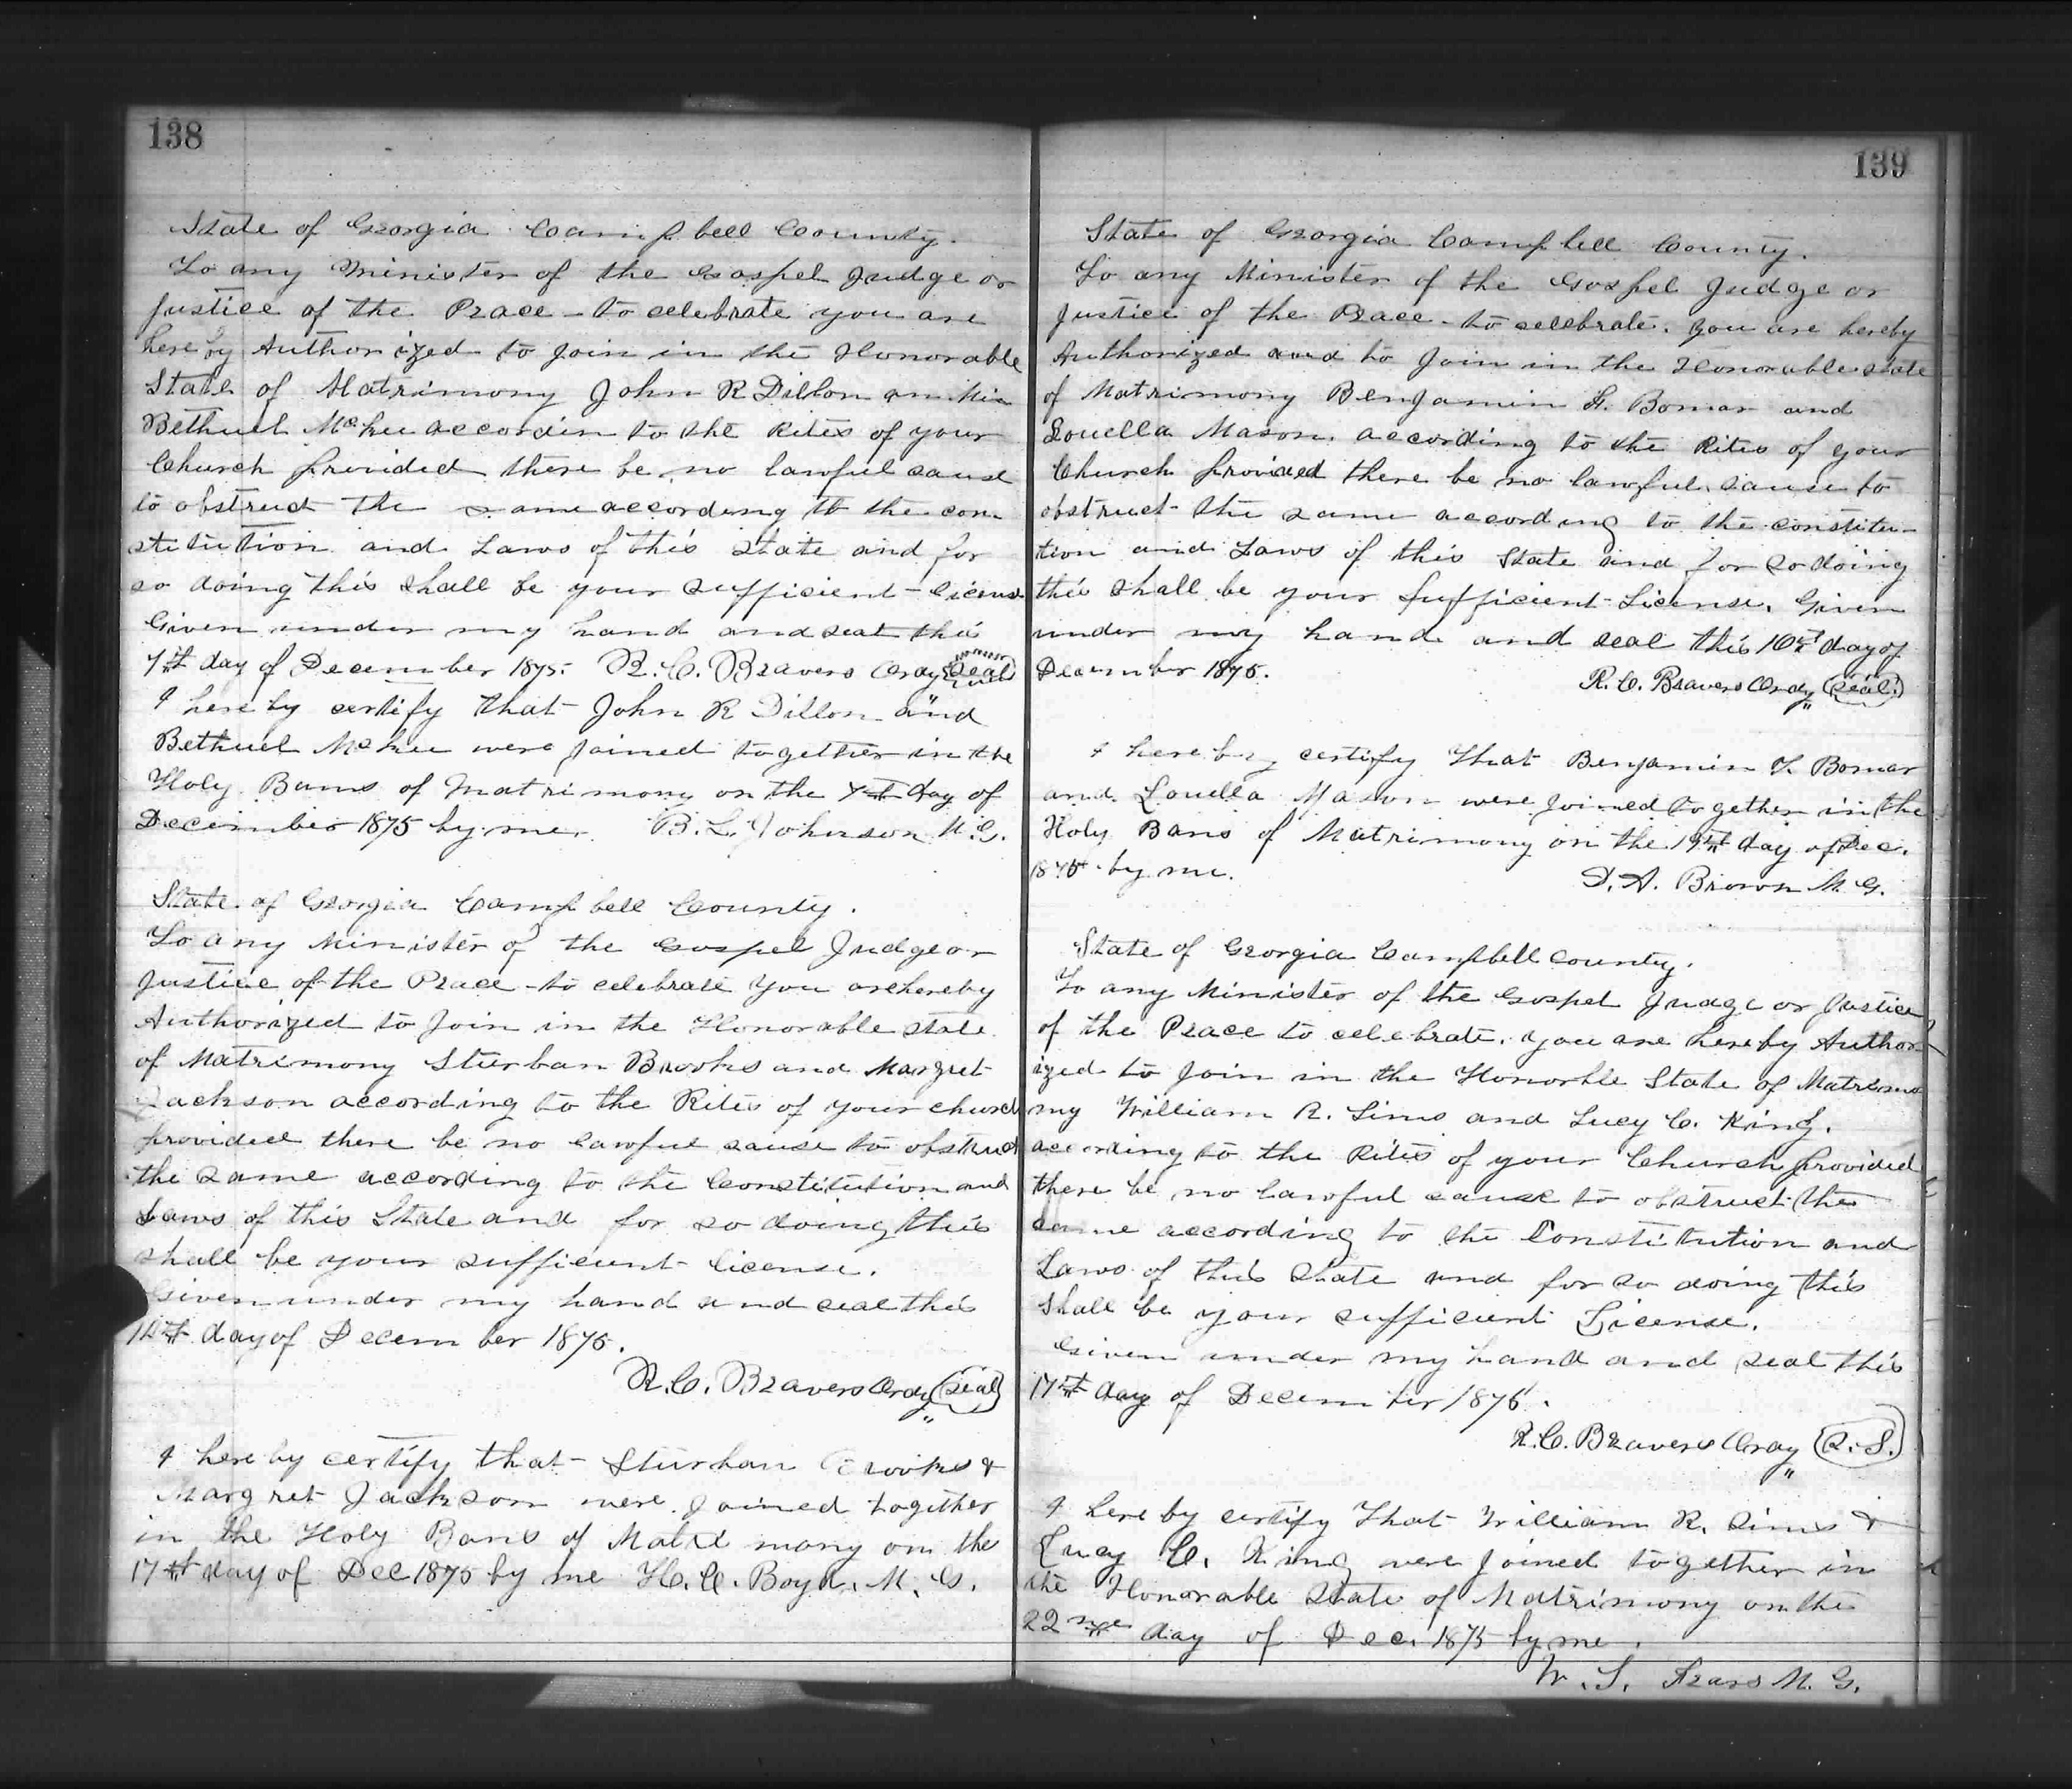 138
State of Georgia Campbell County.
To any Minister of the Gospel Judge or
Justice of the Peace - to celebrate you are
here by Authorized to Join in the Honorable
State of Matrimony John R Dillon an Miss
Bethuel McKee accordin to the Rites of your
Church provided there be no lawful cause
to obstruct the same according to the con
stitution and Laws of this State and for
so doing this shall be your sufficient - license
Given under my hand and seal this
7th day of December 1875. R. C. Beavers Ordy Seal
I here by certify that John R Dillon and
Bethuel McKee were Joined together in the
Holy Bans of Matrimony on the 7th day of
December 1875 by me. B. L. Johnson M. G.
State of Georgia Campbell County.
To any Minister of the Gospel Judge or
Justice of the Peace - to celebrate you are hereby
Authorized to Join in the Honorable State
of Matrimony Sturban Brooks and Margret
Jackson according to the Rites of your church
provided there be no lawful cause to obstruct
the same according to the Constitution and
Laws of this State and for so doing this
shall be your sufficient license.
Given under my hand and seal this
day of December 1875.
R. C. Beavers Ordy Seal
I here by certify that - Sturban Brooks &
Margret Jackson were Joined together
in the Holy Bans of Matri mony on the
17th day of Dec 1875 by me H. C. Boyd. M. G.
139
State of Georgia Campbell County.
To any Minister of the Gospel Judge or
Justice of the Peace - to celebrate. you are hereby
Authorized and to Join in the Honorable State
of Matrimony Benjamin F. Bomar and
Louella Mason. according to the Rites of your
Church provided there be no lawful cause to
obstruct the same according to the constitu-
tion and Laws of this State and for so doing
this shall be your sufficient License. Given
under my hand and seal this 16th day of
December 1875.
R. C. Beavers Ordy Seal.
I here by certify that Benjamin F. Bomar
and Louella Mason were Joined together in the
Holy Bans of Matrimony on the 19th day of Dec.
1875 by me.
D. A. Brown M. G.
State of Georgia Campbell County.
To any Minister of the Gospel Judge or Justice
of the Peace to celebrate. you are hereby Author
ized to Join in the Honorble State of Matrimo
my William R. Sims and Lucy C. King.
according to the Rites of your Church provided
there be no lawful cause to obstruct the
same according to the Constitution and
Laws of this State and for so doing this
shall be your sufficient License.
Given under my hand and seal this
17th day of December 1875.
R. C. Beavers Ordy L. S.
I here by certify that William R. Sims &
Lucy C. King were Joined together in
the Honorable State of Matrimony on the
22nd day of Dec. 1875 by me.
W. S. Fears M. G.